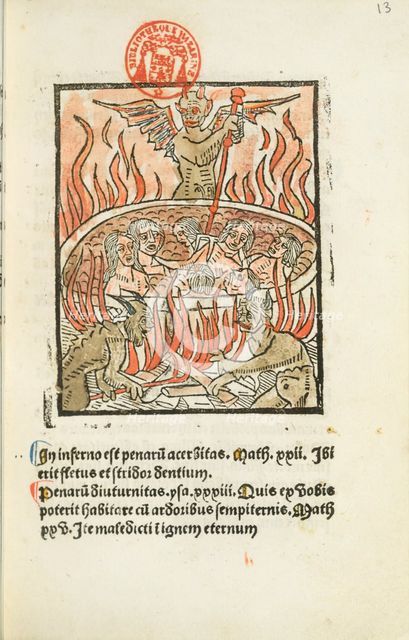 13
BIBLIOTHEQUE
In inferno est penarū acerbitas. Math. xxii. Ibi
erit fletus et stridor dentium.
Penarū diuturnitas. psa. xxxiii. Quis ex vobis
poterit habitare cū ardoribus sempiternis. Math
xxv. Ite maledicti ī ignem eternum